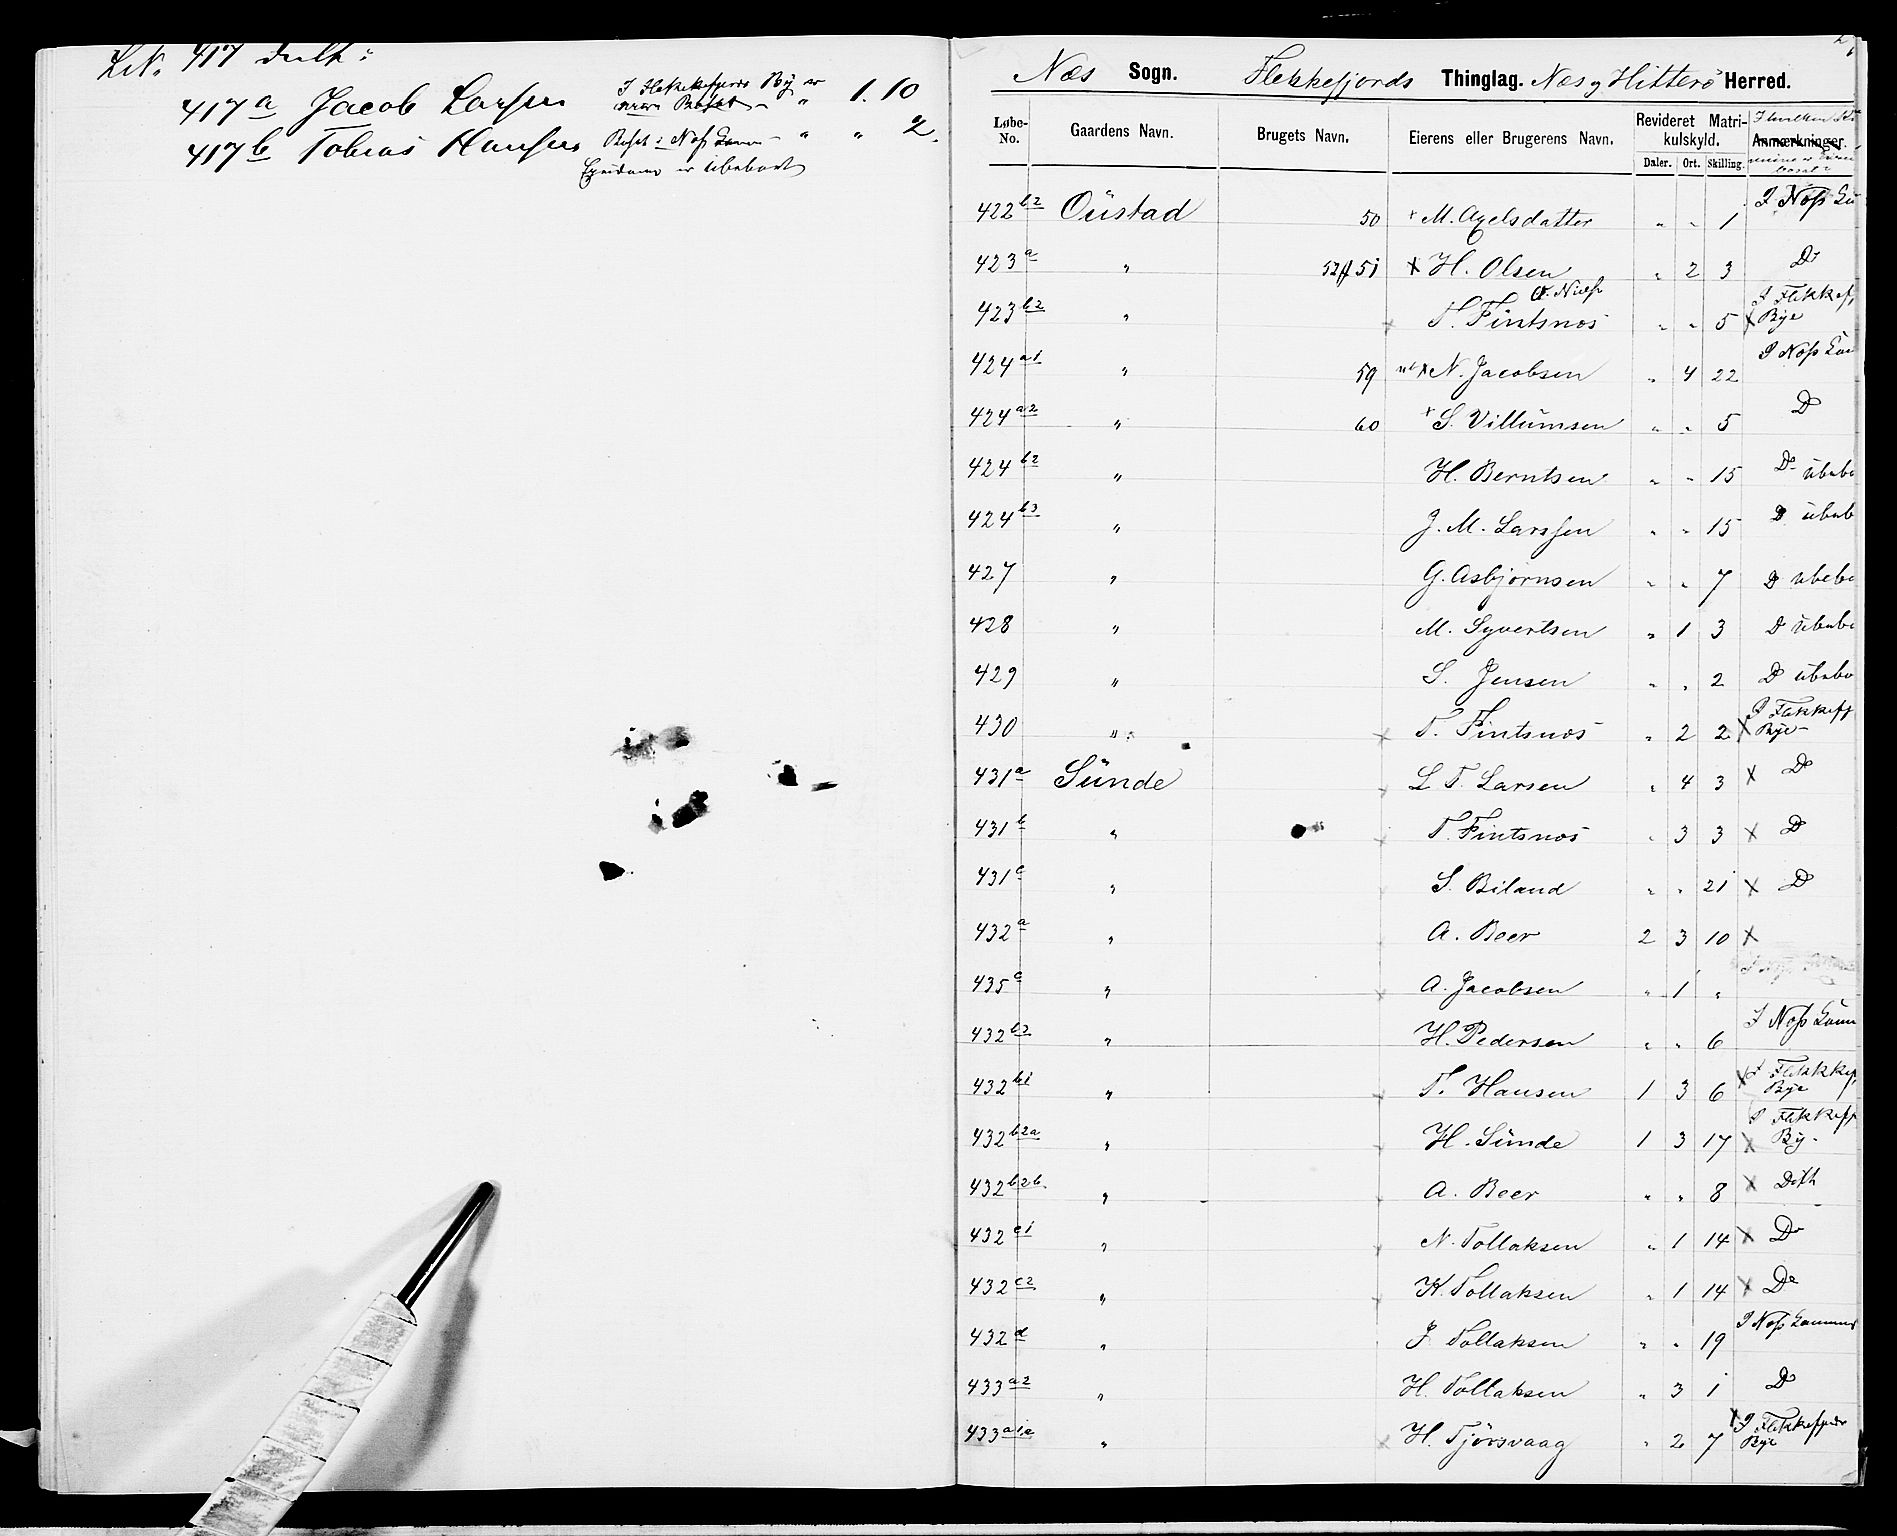 417
417a Jacob Larsen I Flekkefjords By er " 1. 10
417b Tobias Hansen Bosat i Næs " " 2.
Eiendom er ubeboet
Næs Sogn. Flekkefjords Thinglag. Næs og Hitterö Herred.
Løbe-No. Gaardens Navn. Brugets Navn. Eierens eller Brugerens Navn. Revideret Matrikulskyld. Anmærkninger.
Daler. Ort. Skilling.
422 b2 Oustad 50 M. Axelsdatter " " 1 I Næs
423 a " 51 H. Olsen " 2 3 Do
423 b2 " T. Fintsnos " " 5 I Flekkef Bye
424 a1 " 59 N. Jacobsen " 4 22 I Næs
424 a2 " 60 S. Villumsen " " 5 D
424 b2 " H. Berntsen " " 15 Do ubebo
424 b3 " J. M. Larssen " " 15 D ubeb
427 " G. Asbjornsen " " 7 D ubebo
428 " M. Syvertsen " 1 3 D ubebo
429 " S. Jensen " " 2 D ubebo
430 " T. Fintsnos " 2 2 X I Flekkefj Bye
431 a Sünde L T. Larsen " 4 3 X Do
431 b " T. Fintsnos " 3 3 X D
431 c " S. Biland " " 21 X D
432 a " A. Beer 2 3 10 X
435 c " A. Jacobsen " 1 "
432 b3 " H. Pedersen " " 6 I Næs
432 b1 " T. Hansen 1 3 6 X I Flekkef Bye
432 b2a " H. Sünde 1 3 17 X I Flekkefj By
432 b2b " A. Beer " " 8 X Dith
432 c1 " N. Tollaksen " 1 14 X Do
432 c2 " K. Tollaksen " 1 14 X Do
432 d " J Tollaksen " " 19 I Næs
433 a2 " H. Tollaksen " 3 1 Do
433 a1a " H. Tjörsvaag " 2 7 X I Flekkefjords Bye